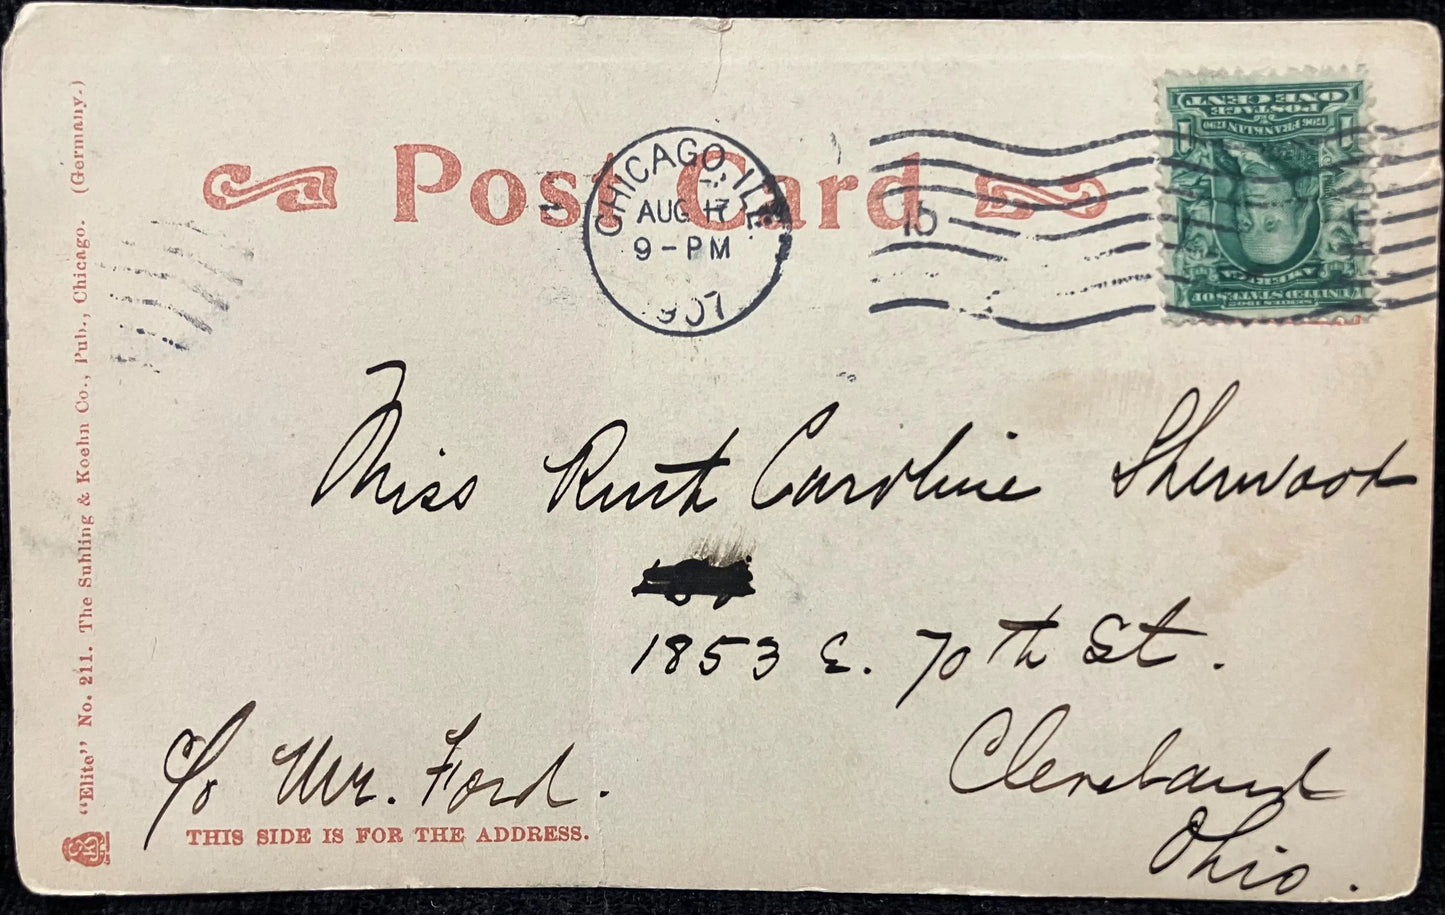 Post Card
CHICAGO, ILL.
AUG 17
9-PM
1907
15
ONE CENT
POSTAGE
1706 FRANKLIN 1790
1 1
UNITED STATES OF
AMERICA
SERIES 1902
Miss Ruth Caroline Sherwood
1853 E. 70th St.
Cleveland
Ohio.
c/o Mr. Ford.
THIS SIDE IS FOR THE ADDRESS.
"Elite" No. 211. The Suhling & Koehn Co., Pub., Chicago. (Germany.)